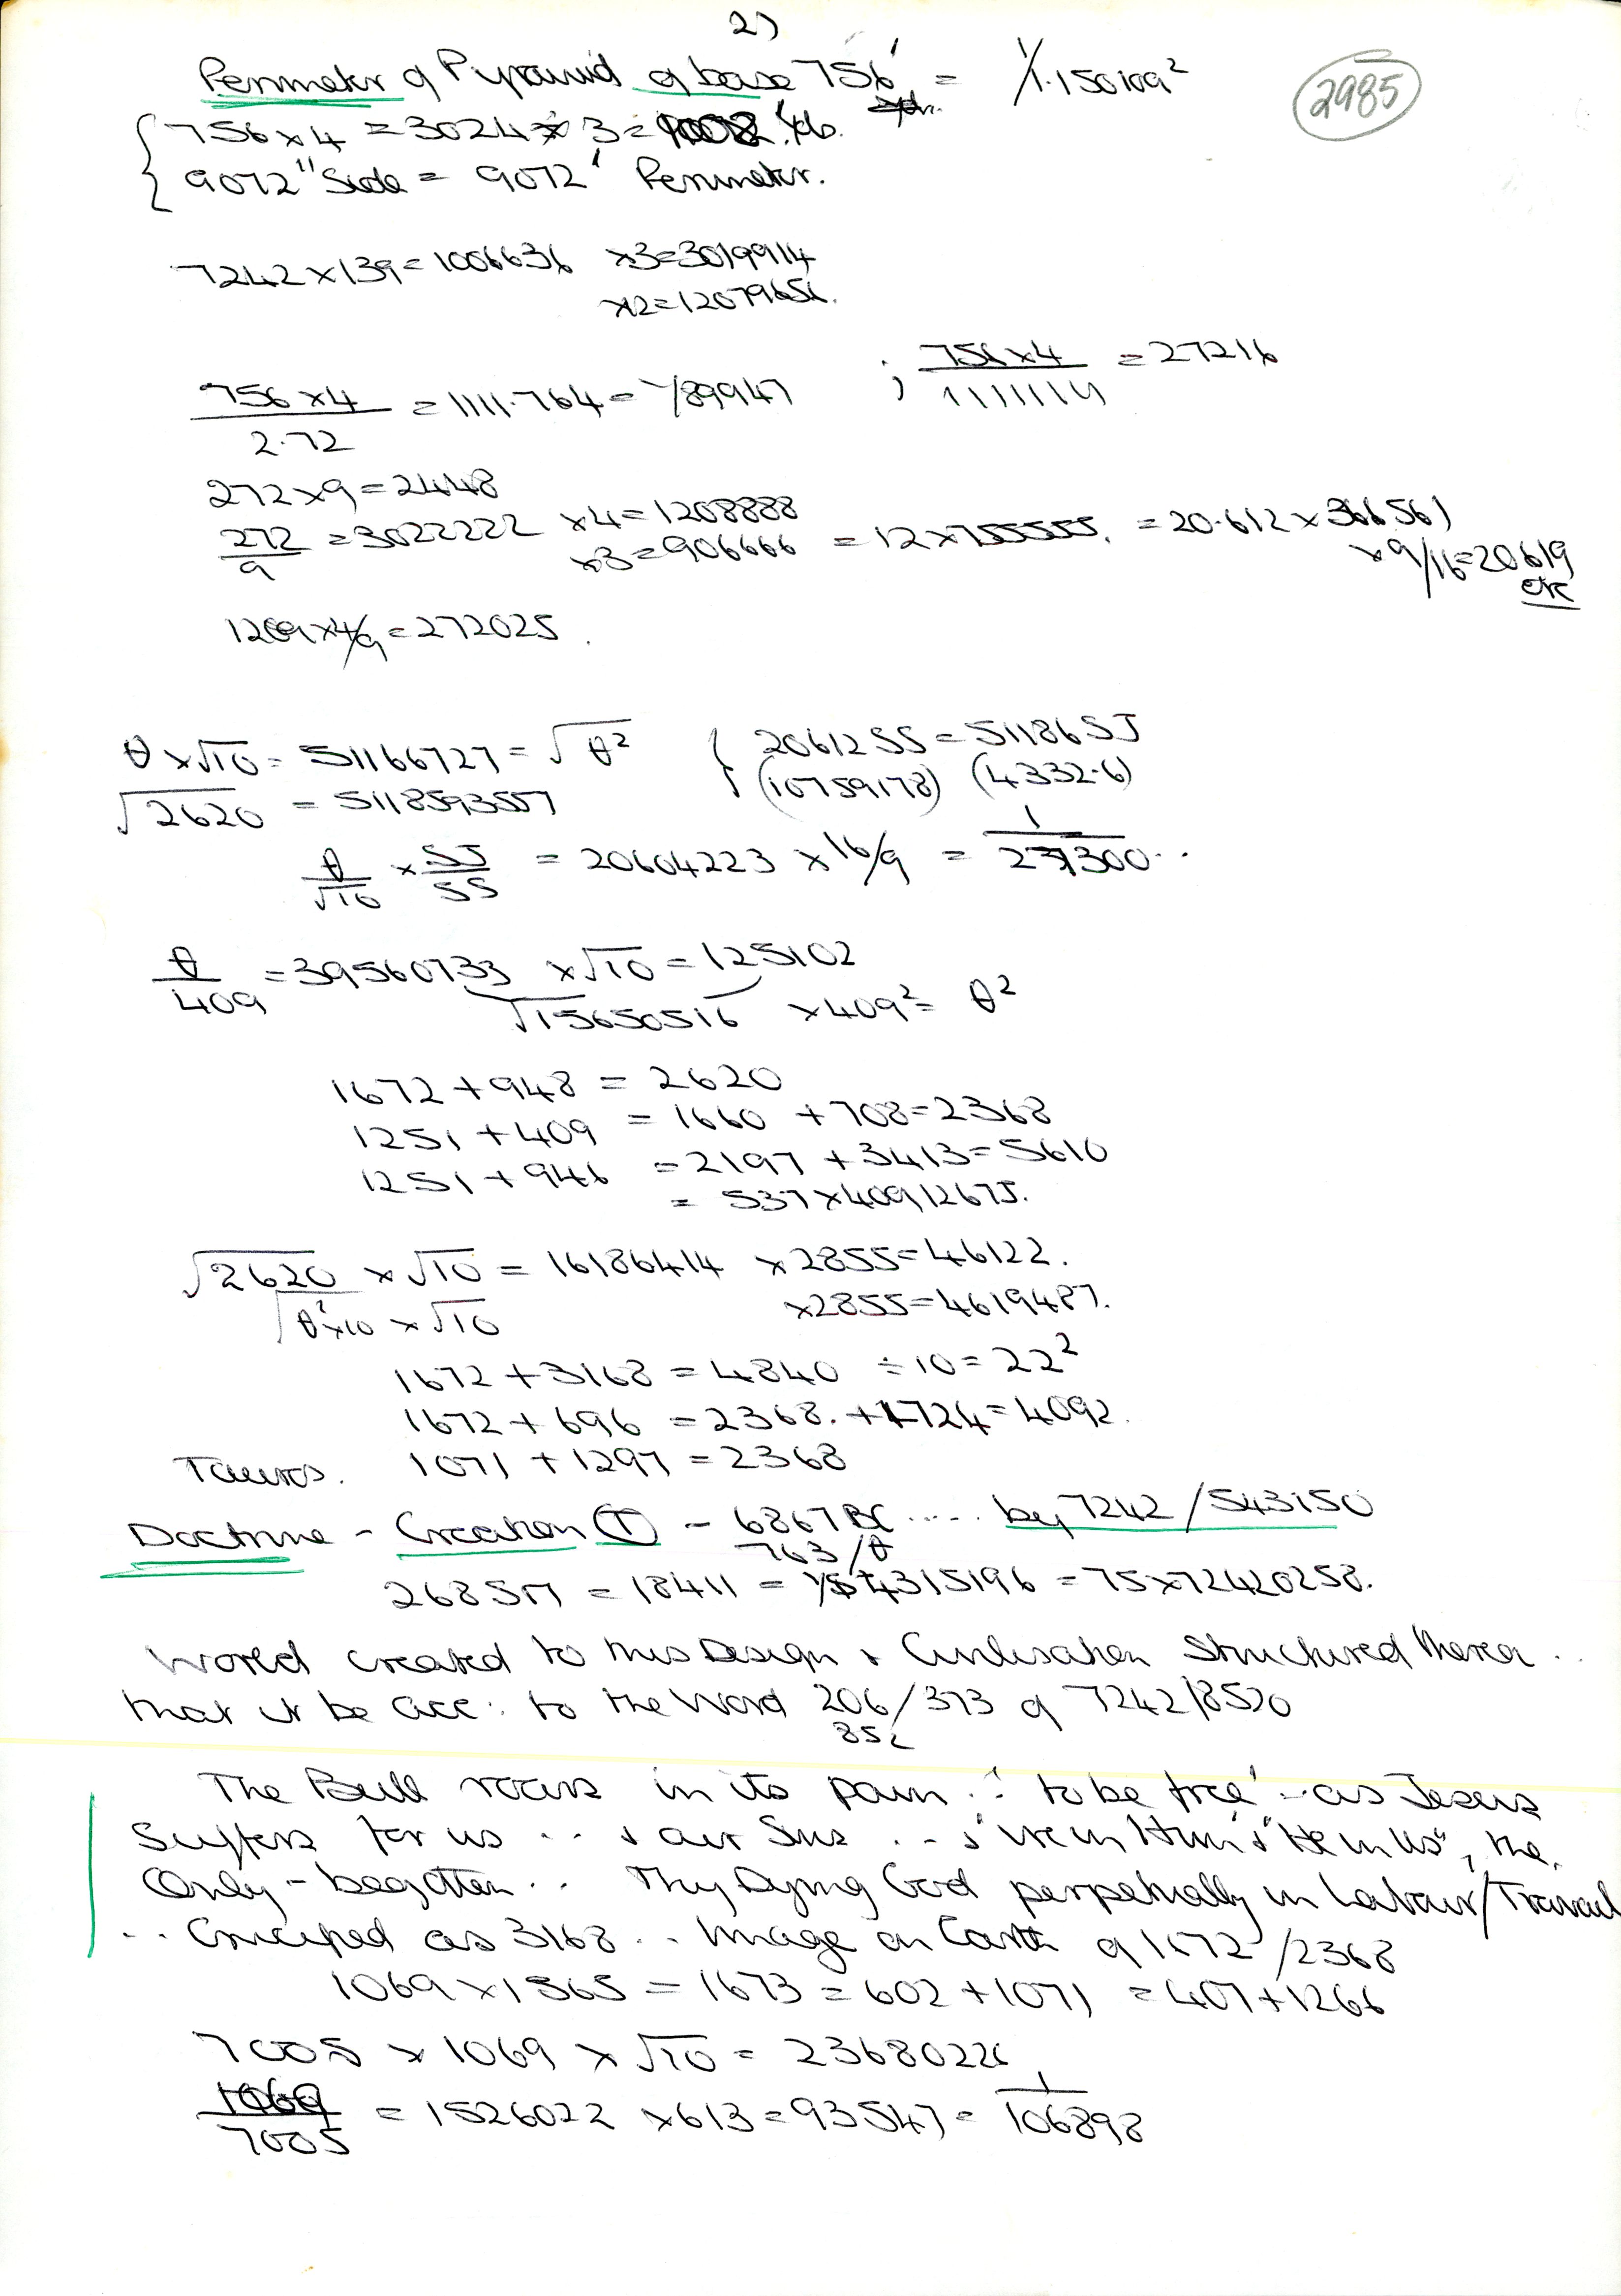 2)
2985
Perimeter of Pyramid of base 756' = 1/1.150109²
756 x 4 = 3024 3 = 1008 yds.
9072" Side = 9072' Perimeter.
7242 x 139 = 1006636 x3 = 3019914
x12 = 12079656.
756 x 4 / 2.72 = 1111.764 = 1/89947 ; 756 x 4 / 11111111 = 27216
272 x 9 = 2448
272/9 = 3022222 x4 = 1208888
x3 = 906666 = 12 x 755555. = 20.612 x 366561
x 9/16 = 20619
etc
1209 x 4/9 = 272025.
θ x √10 = 51166727 = √θ² { 206125S = 51186SJ
√2620 = 5118593557 (10759178) (4332.6)
θ/√10 x SJ/SS = 20604223 x 16/9 = 1/27300..
θ/409 = 39560733 x √10 = 125102
√15650516 x 409² = θ²
1672 + 948 = 2620
1251 + 409 = 1660 + 708 = 2368
1251 + 946 = 2197 + 3413 = 5610
= 537 x 4091267J.
√2620 x √10 = 16186414 x 2855 = 46122.
√θ²x10 x √10 x 2855 = 4619487.
1672 + 3168 = 4840 ÷ 10 = 22²
1672 + 696 = 2368. + 1724 = 4092.
Taurus. 1071 + 1297 = 2368
Doctrine - Creation (T) - 6867 BC .... by 7242 / 543150
763 / θ
268517 = 18411 = 1/54315196 = 75 x 72420258.
World created to this Design & Civilisation Structured thereon ..
that it be acc: to the Word 206 / 373 of 7242 / 8520
852
The Bull roars in its pain .. 'to be free' .. as Jesus
Suffers for us ... & our Sins ... & "we in Him" & "He in Us", the
Only-begotten .. Thy Dying God perpetually in Labour/Travail
.. Crucified as 3168 .. Image on Earth of 1672 / 2368
1069 x 1565 = 1673 = 602 + 1071 = 407 + 1266
7005 x 1069 x √10 = 23680226
1069/7005 = 1526022 x 613 = 93547 = 1/106898